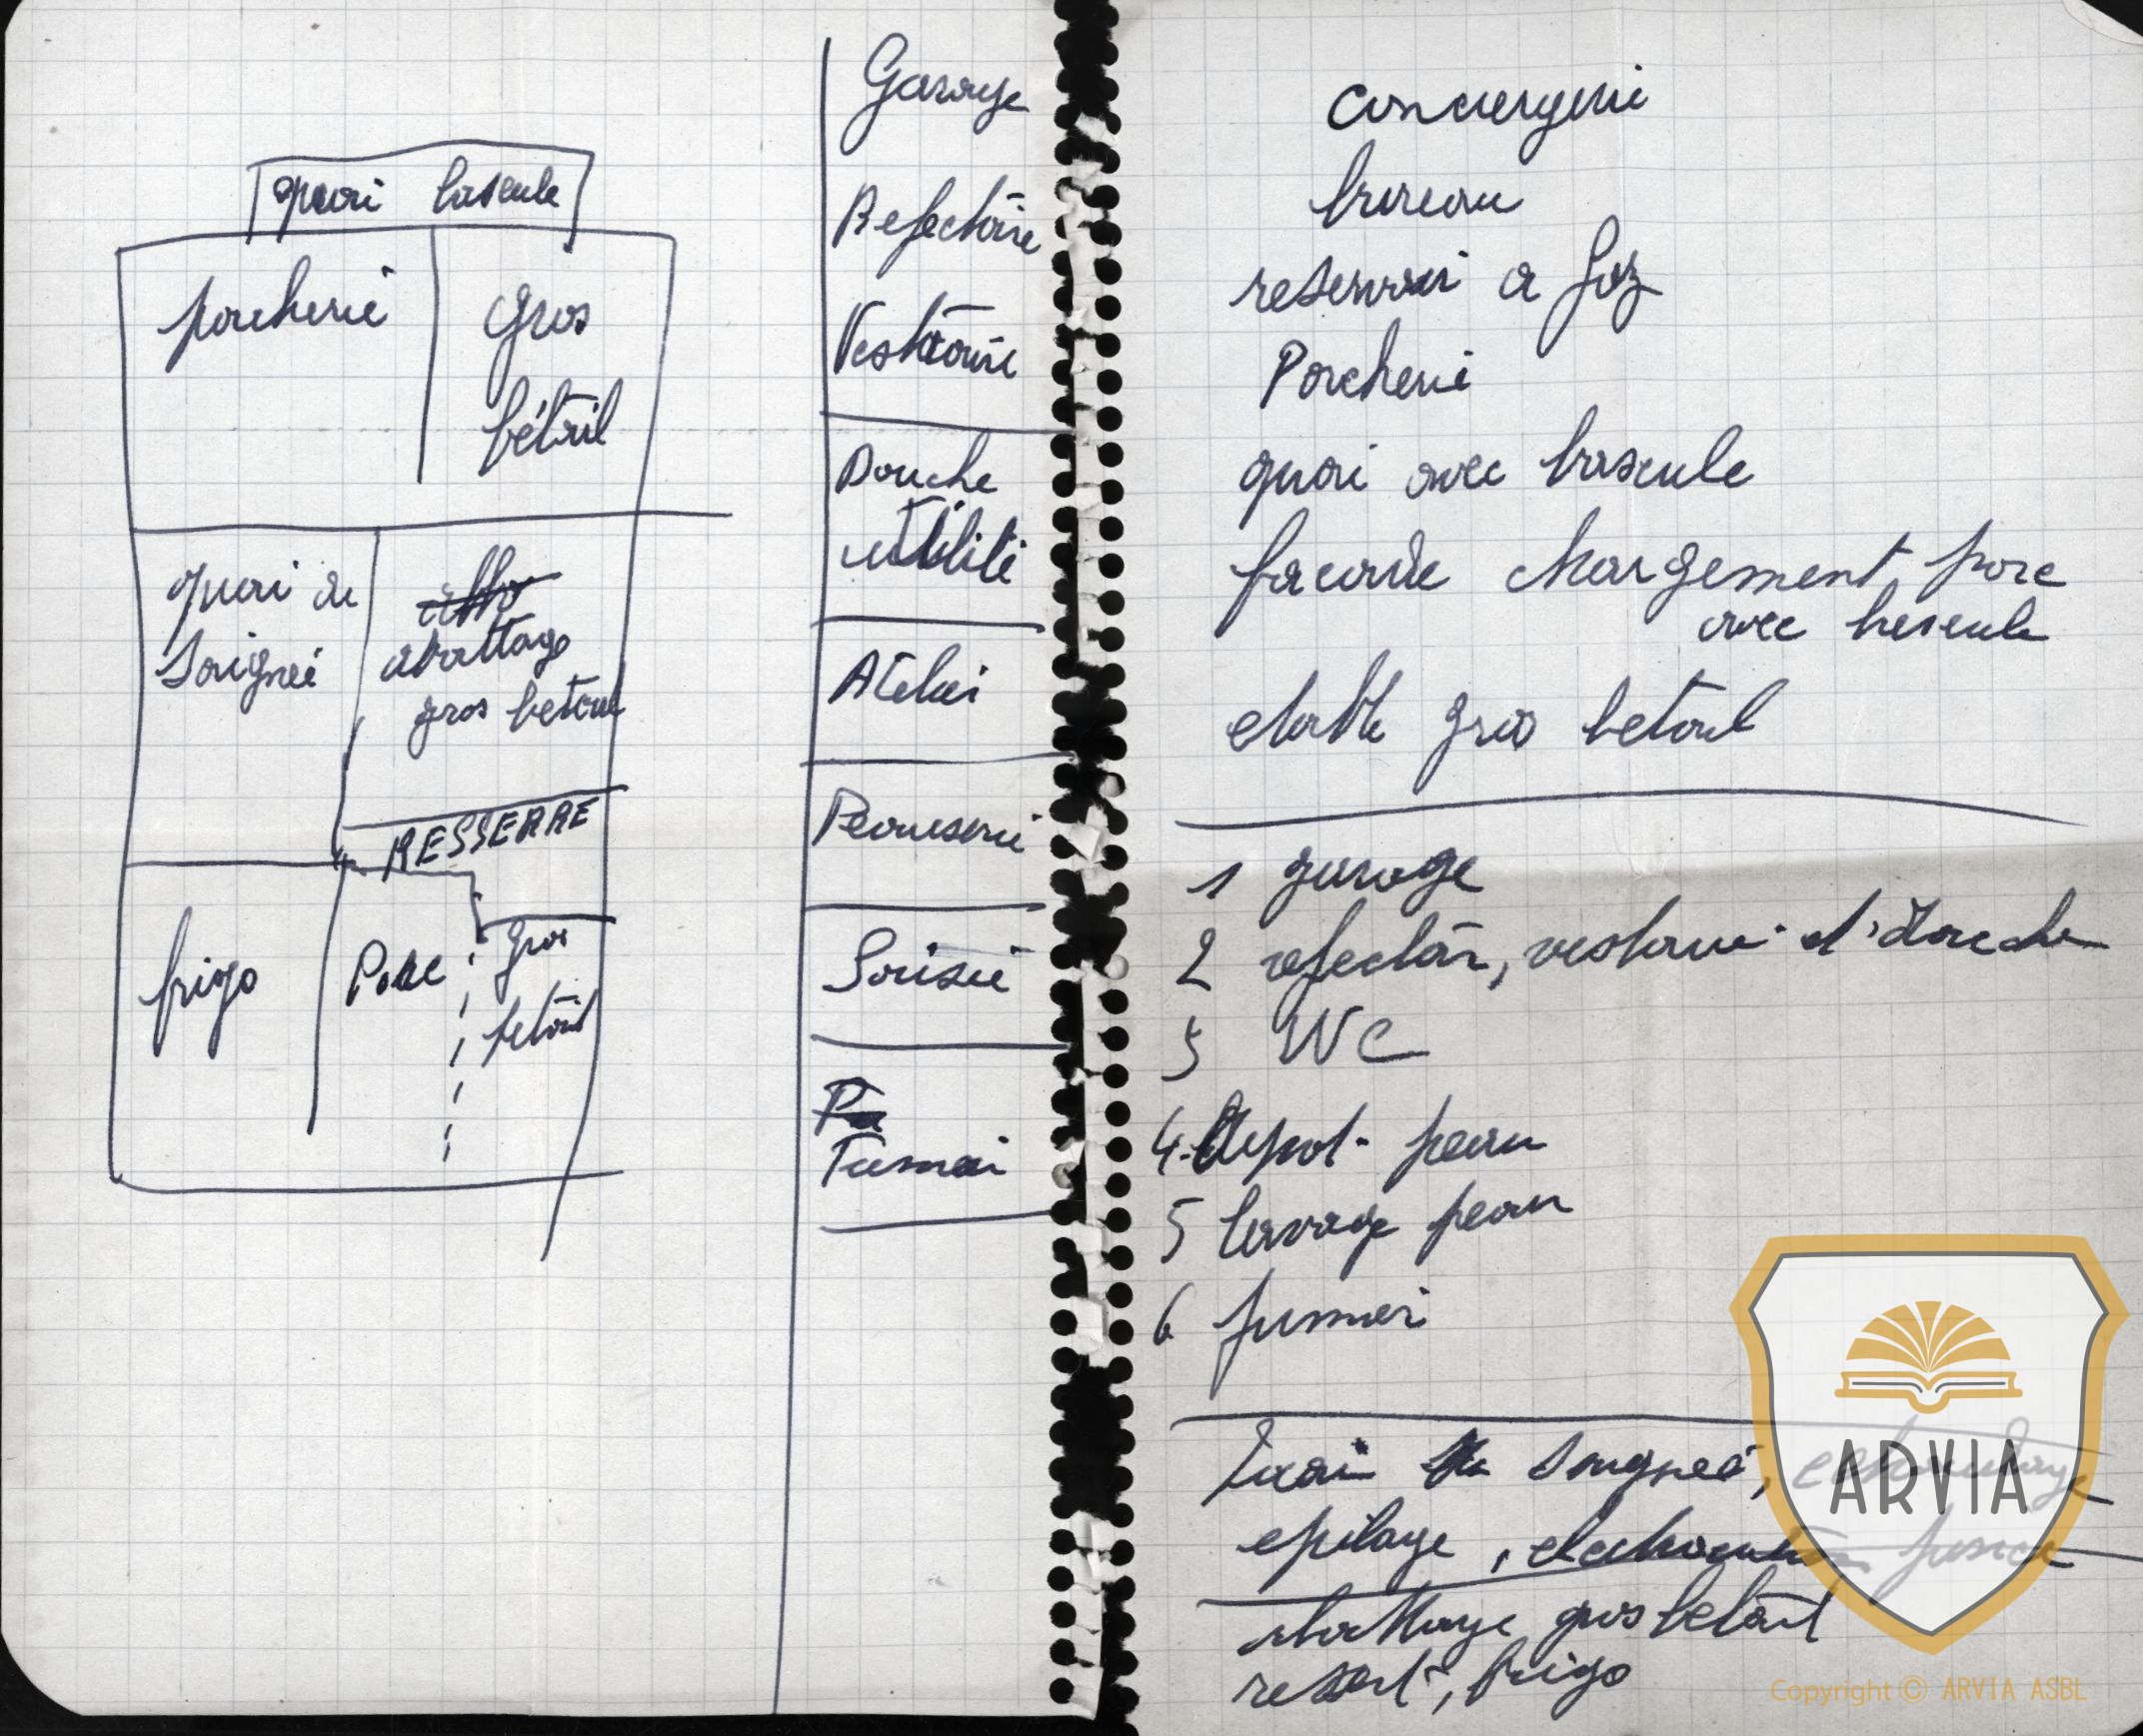 quai bascule
porcherie
gros
bétail
quai de
Soignée
abattage
gros betail
RESSERRE
frigo
Porc
gros
betail
Garage
Refectoire
Vestiaire
Douche
utilité
Atelier
Fumier
conciergerie
bureau
reservoir a
Porcherie
quai avec bascule
facade chargement porc
avec bascule
etable gros betail
1 garage
2 refectoir, vestiaire et douche
3 WC
4 Depot peau
5 lavage peau
6 fumier
Soignée,
epilage, electrocution
abattage gros betail
frigo
ARVIA
Copyright © ARVIA ASBL